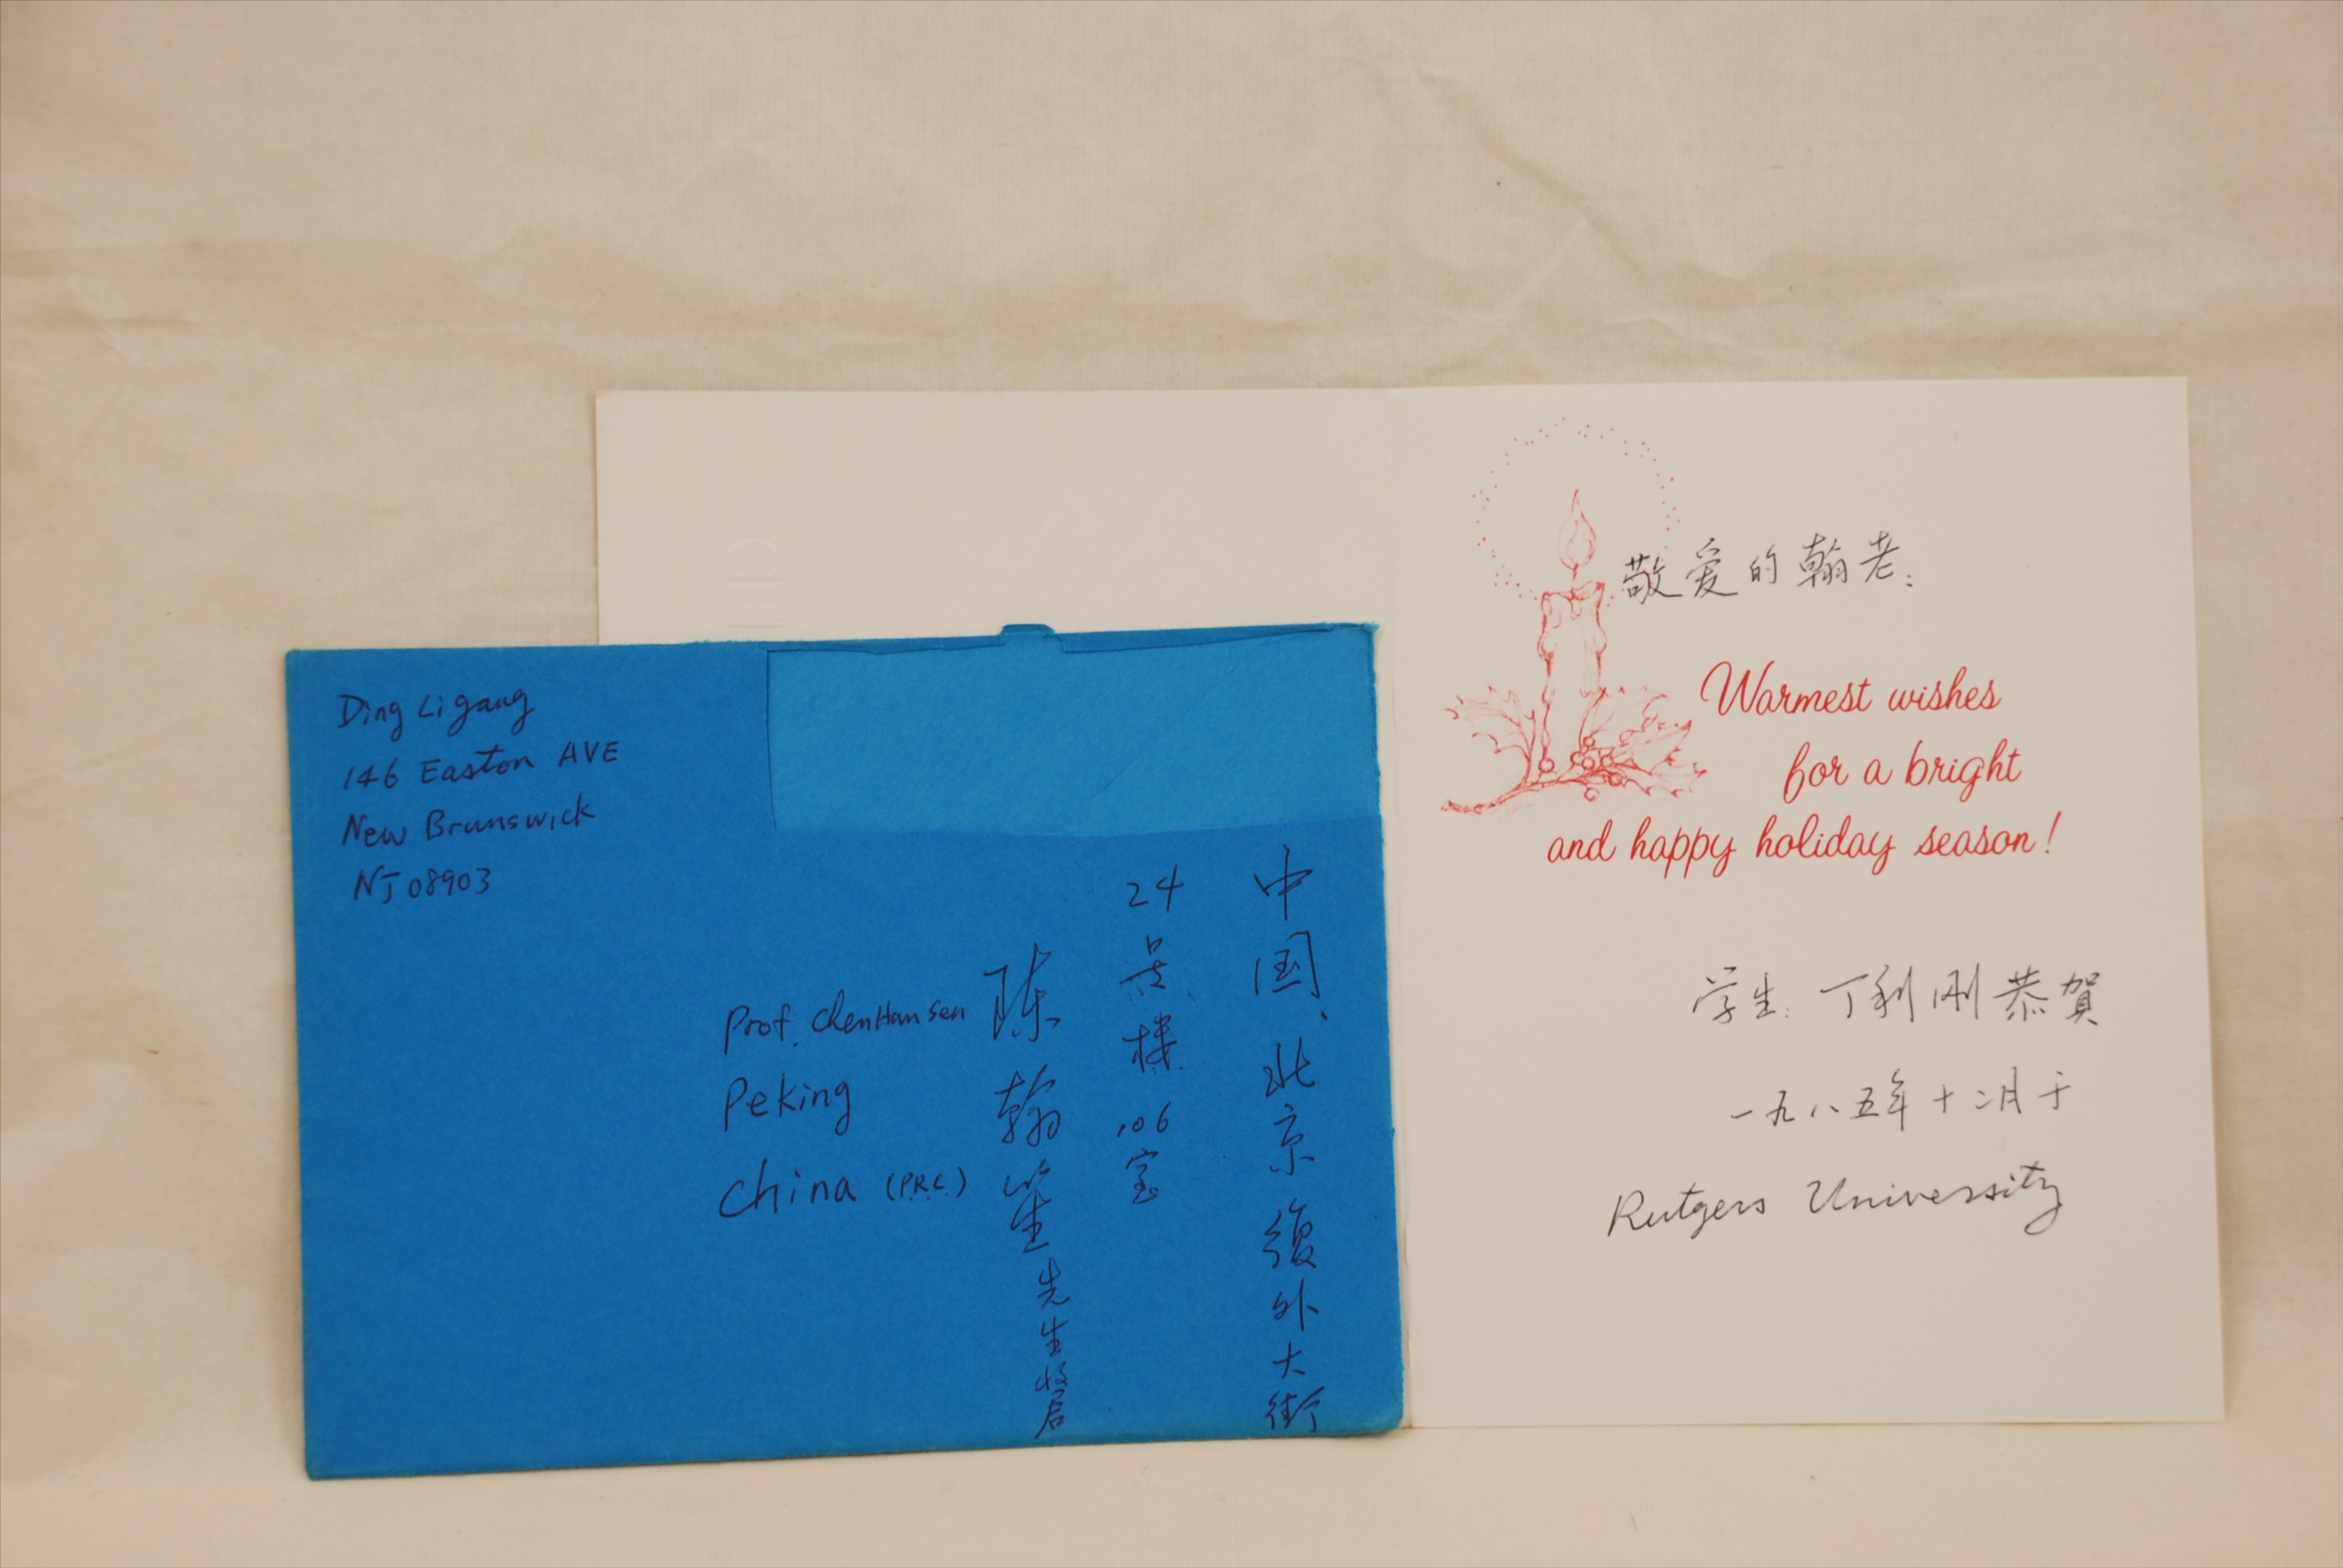 Ding Ligang
146 Easton AVE
New Brunswick
NJ 08903
中国、北京復外大街
24号楼106室
陈翰笙先生收启
Prof. Chen Han sen
Peking
China (P.R.C.)
敬爱的翰老：
Warmest wishes
for a bright
and happy holiday season!
学生：丁利刚恭贺
一九八五年十二月于
Rutgers University